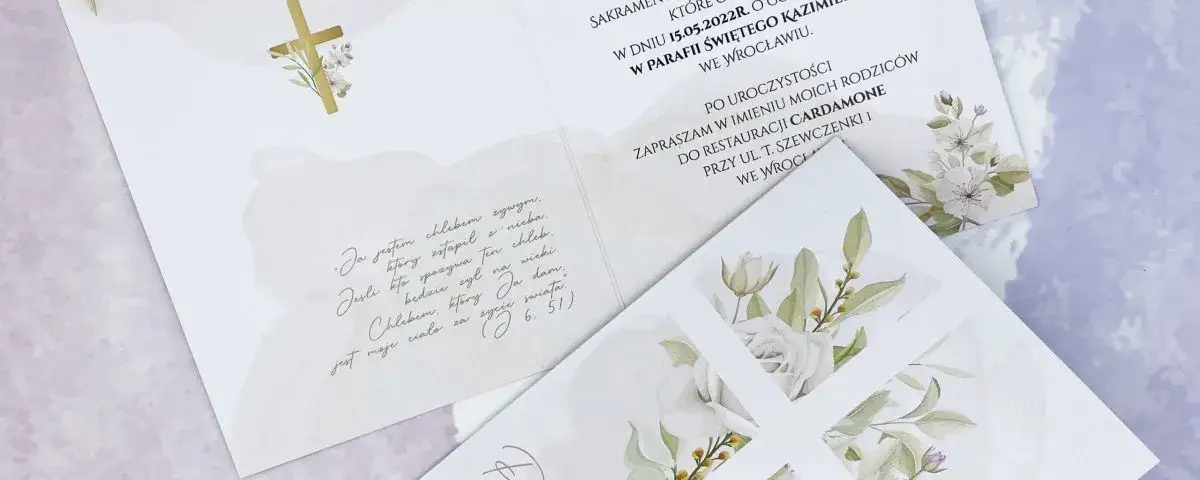 „Ja jestem chlebem żywym,
który zstąpił z nieba.
Jeśli kto spożywa ten chleb,
będzie żył na wieki.
Chlebem, który Ja dam,
jest moje ciało za życie świata."
(J 6, 51)
KTÓRE
W DNIU 15.05.2022R. O
W PARAFII ŚWIĘTEGO
WE WROCŁAWIU.
PO UROCZYSTOŚCI
ZAPRASZAM W IMIENIU MOICH RODZICÓW
DO RESTAURACJI CARDAMONE
PRZY UL. T. SZEWCZENKI 1
WE